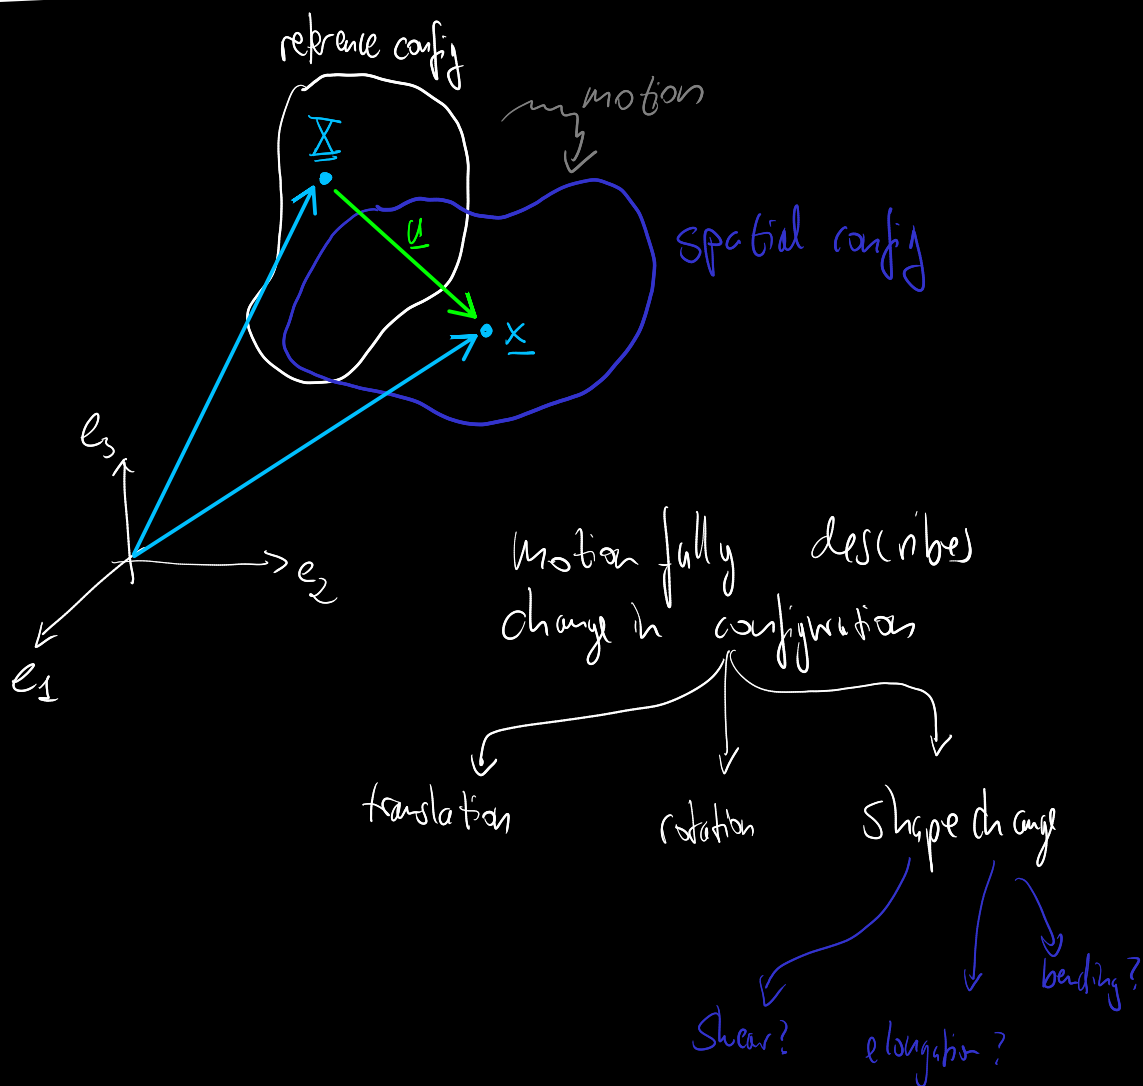 reference config
motion
X
u
spatial config
x
e3
e2
e1
motion fully describes
change in configuration
translation
rotation
shape change
bending?
shear?
elongation?